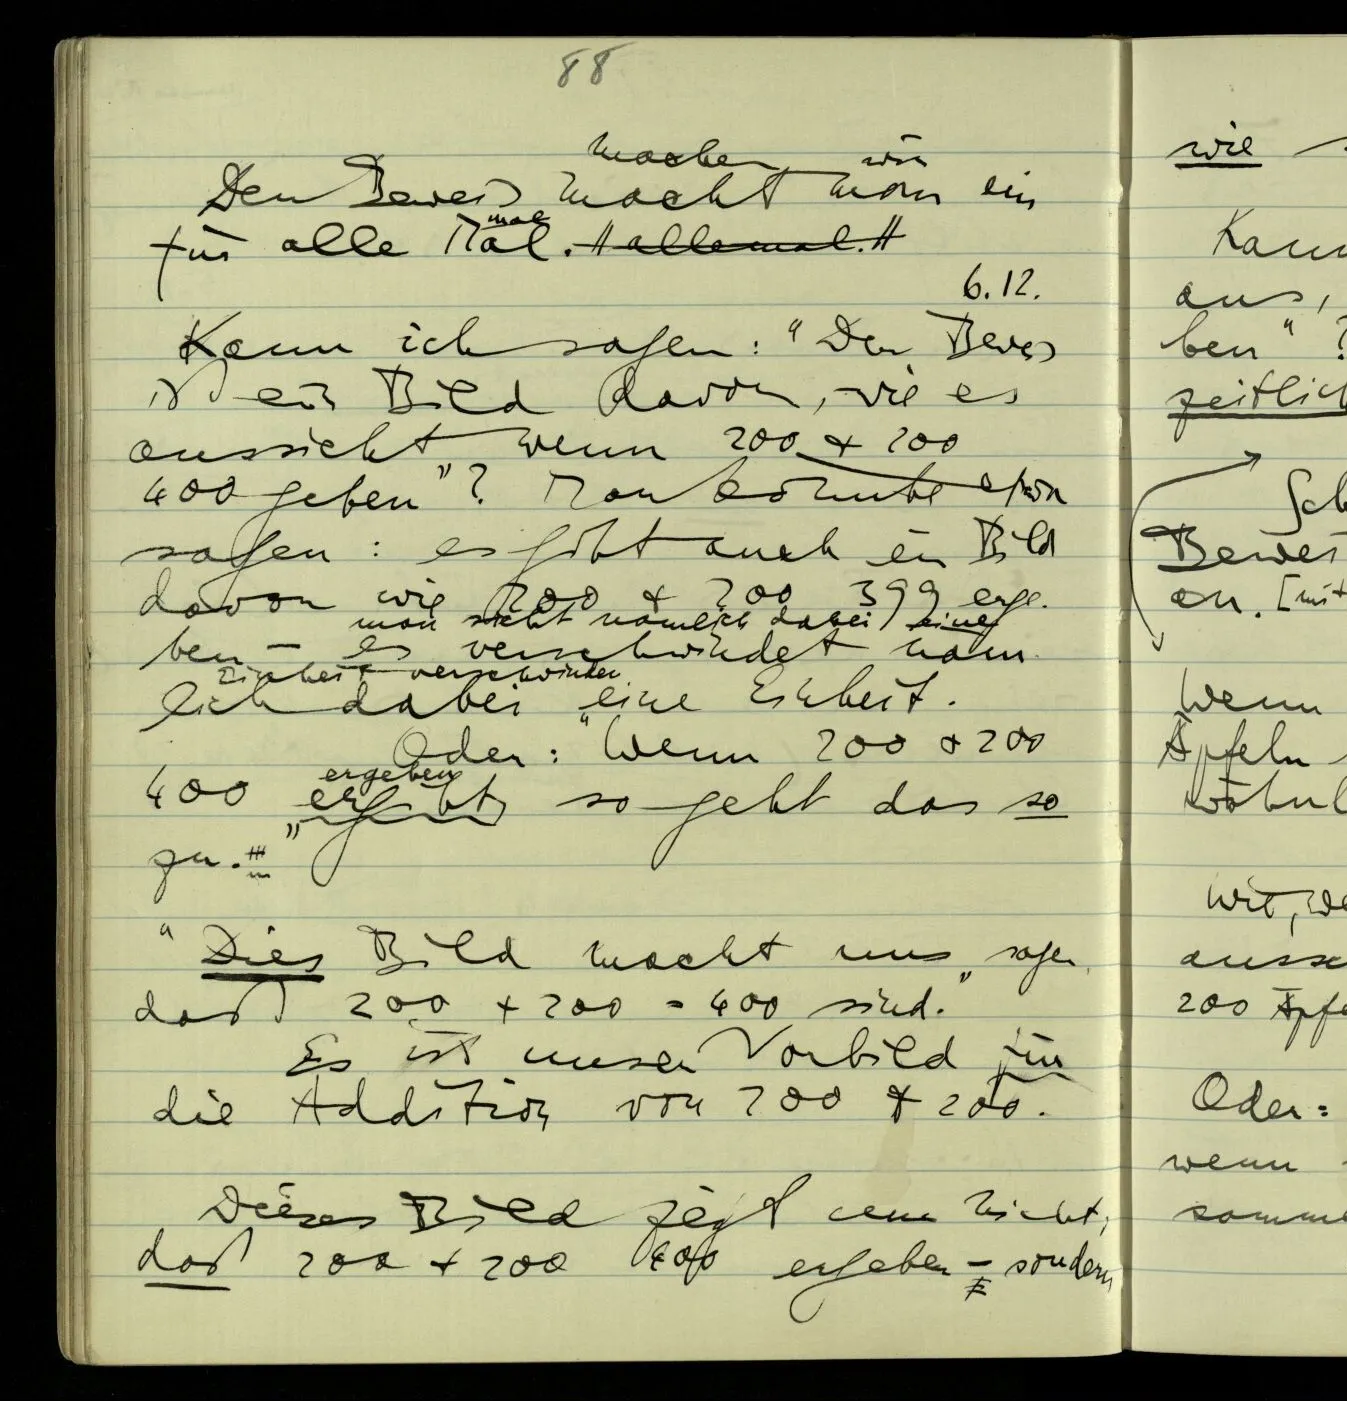 88
machen wir
Den Beweis macht man ein
für alle Mal. // allemal. //
mal
6.12.
Kann ich sagen: "Der Beweis
ist ein Bild davon, wie es
aussieht wenn 200 + 200
400 geben"? Man könnte
sagen: es gibt auch ein Bild
davon wie 200 + 200 399 erge-
man sieht nämlich dabei eine
ben – es verschwindet näm-
Einheit verschwinden
lich dabei eine Einheit.
Oder: "Wenn 200 + 200
ergeben
400 ergibt, so geht das so
zu."
"Dies Bild macht uns sagen,
daß 200 + 200 = 400 sind."
Es ist unser Vorbild für
die Addition von 200 + 200.
Dieses Bild zeigt uns nicht,
daß 200 + 200 400 ergeben – sondern
wie
Kann
aus,
ben" ?
zeitlich
Bewei
an. [mit
Wenn
Äpfeln
Wir, we
200 Äpfe
Oder:
wenn